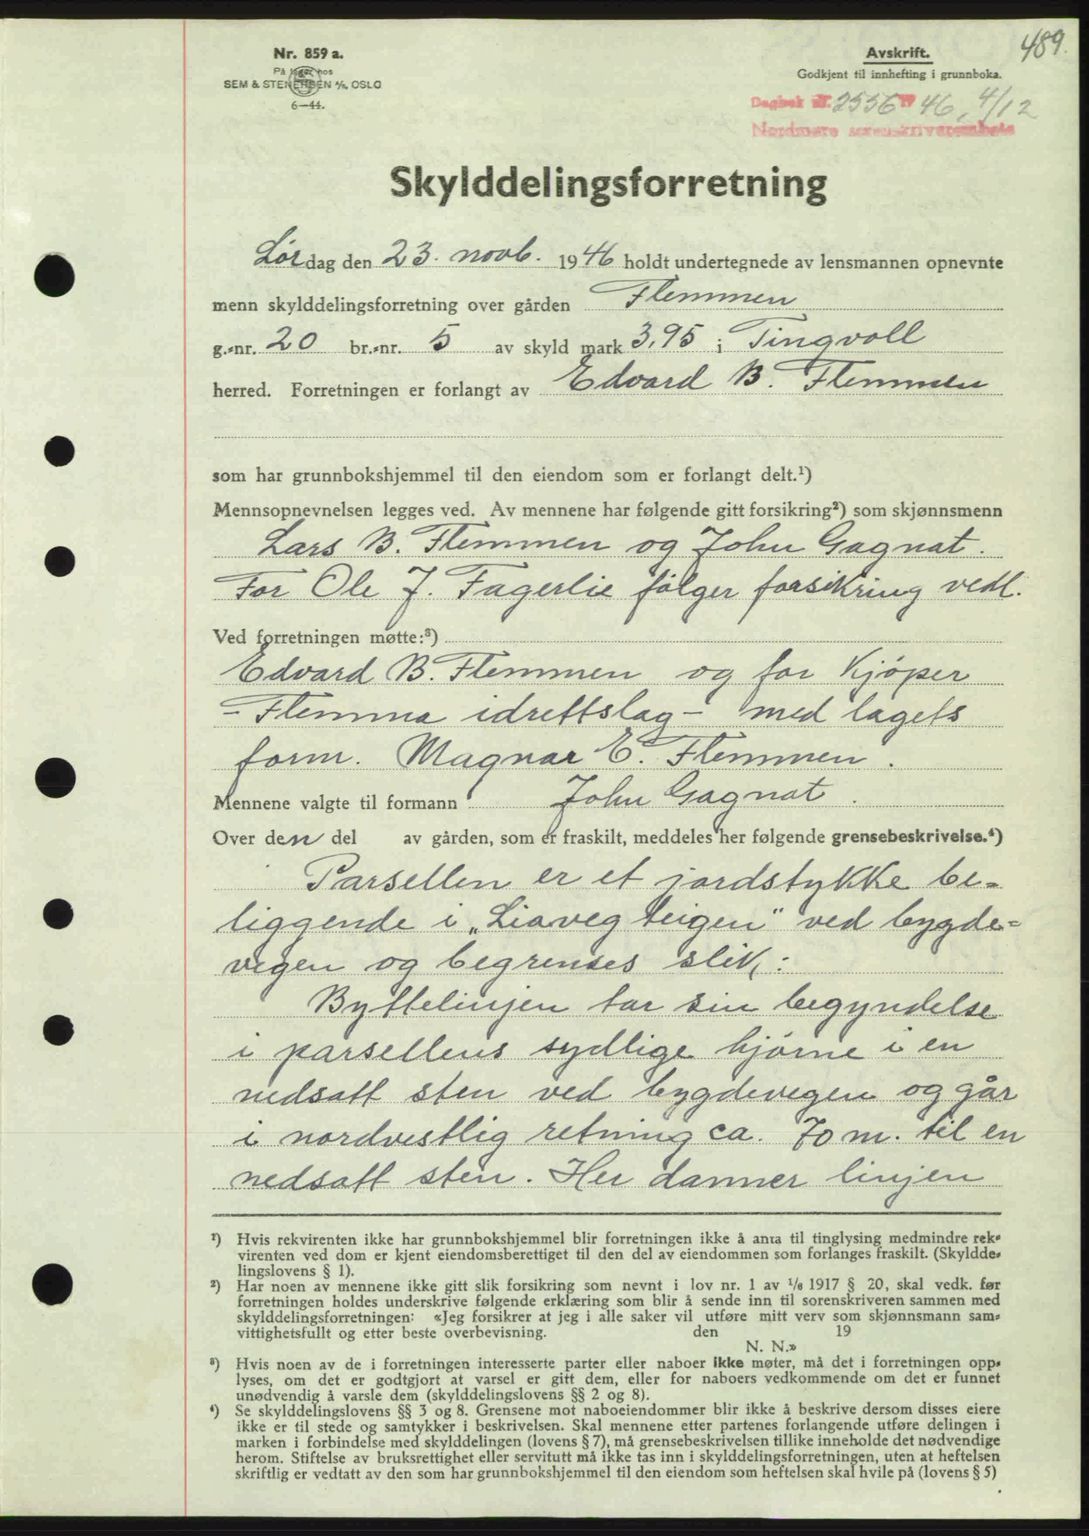 489.
Nr. 859 a.
På lager hos
SEM & STENERSEN A/S, OSLO
6—44.
Avskrift.
Godkjent til innhefting i grunnboka.
Dagbok nr. 2556 19 46, 4/12
Nordmøre sorenskriverembete
Skylddelingsforretning
Lørdag den 23. novb. 1946 holdt undertegnede av lensmannen opnevnte
menn skylddelingsforretning over gården Flemmen
g.-nr. 20 br.-nr. 5 av skyld mark 3,95 i Tingvoll
herred. Forretningen er forlangt av Edvard B. Flemmen
som har grunnbokshjemmel til den eiendom som er forlangt delt.¹)
Mennsopnevnelsen legges ved. Av mennene har følgende gitt forsikring²) som skjønnsmenn
Lars B. Flemmen og John Gagnat.
For Ole J. Fagerlie følger forsikring vedl.
Ved forretningen møtte:³)
Edvard B. Flemmen og for kjøper
- Flemma idrettslag - med lagets
form. Magnar E. Flemmen.
Mennene valgte til formann John Gagnat.
Over den del av gården, som er fraskilt, meddeles her følgende grensebeskrivelse.⁴)
Parsellen er et jordstykke be-
liggende i „Liavegteigen" ved bygde-
vegen og begrenses slik:
Byttelinjen tar sin begyndelse
i parsellens sydlige hjørne i en
nedsatt sten ved bygdevegen og går
i nordvestlig retning ca. 70 m. til en
nedsatt sten. Her danner linjen
¹) Hvis rekvirenten ikke har grunnbokshjemmel blir forretningen ikke å anta til tinglysing medmindre rek-
virenten ved dom er kjent eiendomsberettiget til den del av eiendommen som forlanges fraskilt. (Skyldde-
lingslovens § 1).
²) Har noen av mennene ikke gitt slik forsikring som nevnt i lov nr. 1 av 1/6 1917 § 20, skal vedk. før
forretningen holdes underskrive følgende erklæring som blir å sende inn til sorenskriveren sammen med
skylddelingsforretningen: «Jeg forsikrer at jeg i alle saker vil utføre mitt verv som skjønnsmann sam-
vittighetsfullt og etter beste overbevisning. den 19
N. N.»
³) Hvis noen av de i forretningen interesserte parter eller naboer ikke møter, må det i forretningen opp-
lyses, om det er godtgjort at varsel er gitt dem, eller for naboers vedkommende om det er funnet
unødvendig å varsle dem (skylddelingslovens §§ 2 og 8).
⁴) Se skylddelingslovens §§ 3 og 8. Grensene mot naboeiendommer blir ikke å beskrive dersom disses eiere
ikke er til stede og samtykker i beskrivelsen. Skal mennene etter partenes forlangende utføre delingen i
marken i forbindelse med skylddelingen (lovens § 7), må grensebeskrivelsen tillike inneholde det nødvendige
herom. Stiftelse av bruksrettighet eller servitutt må ikke tas inn i skylddelingsforretningen, uten at heftelsen
skriftlig er vedtatt av den som har grunnbokshjemmel til den eiendom som heftelsen skal hvile på (lovens § 5)